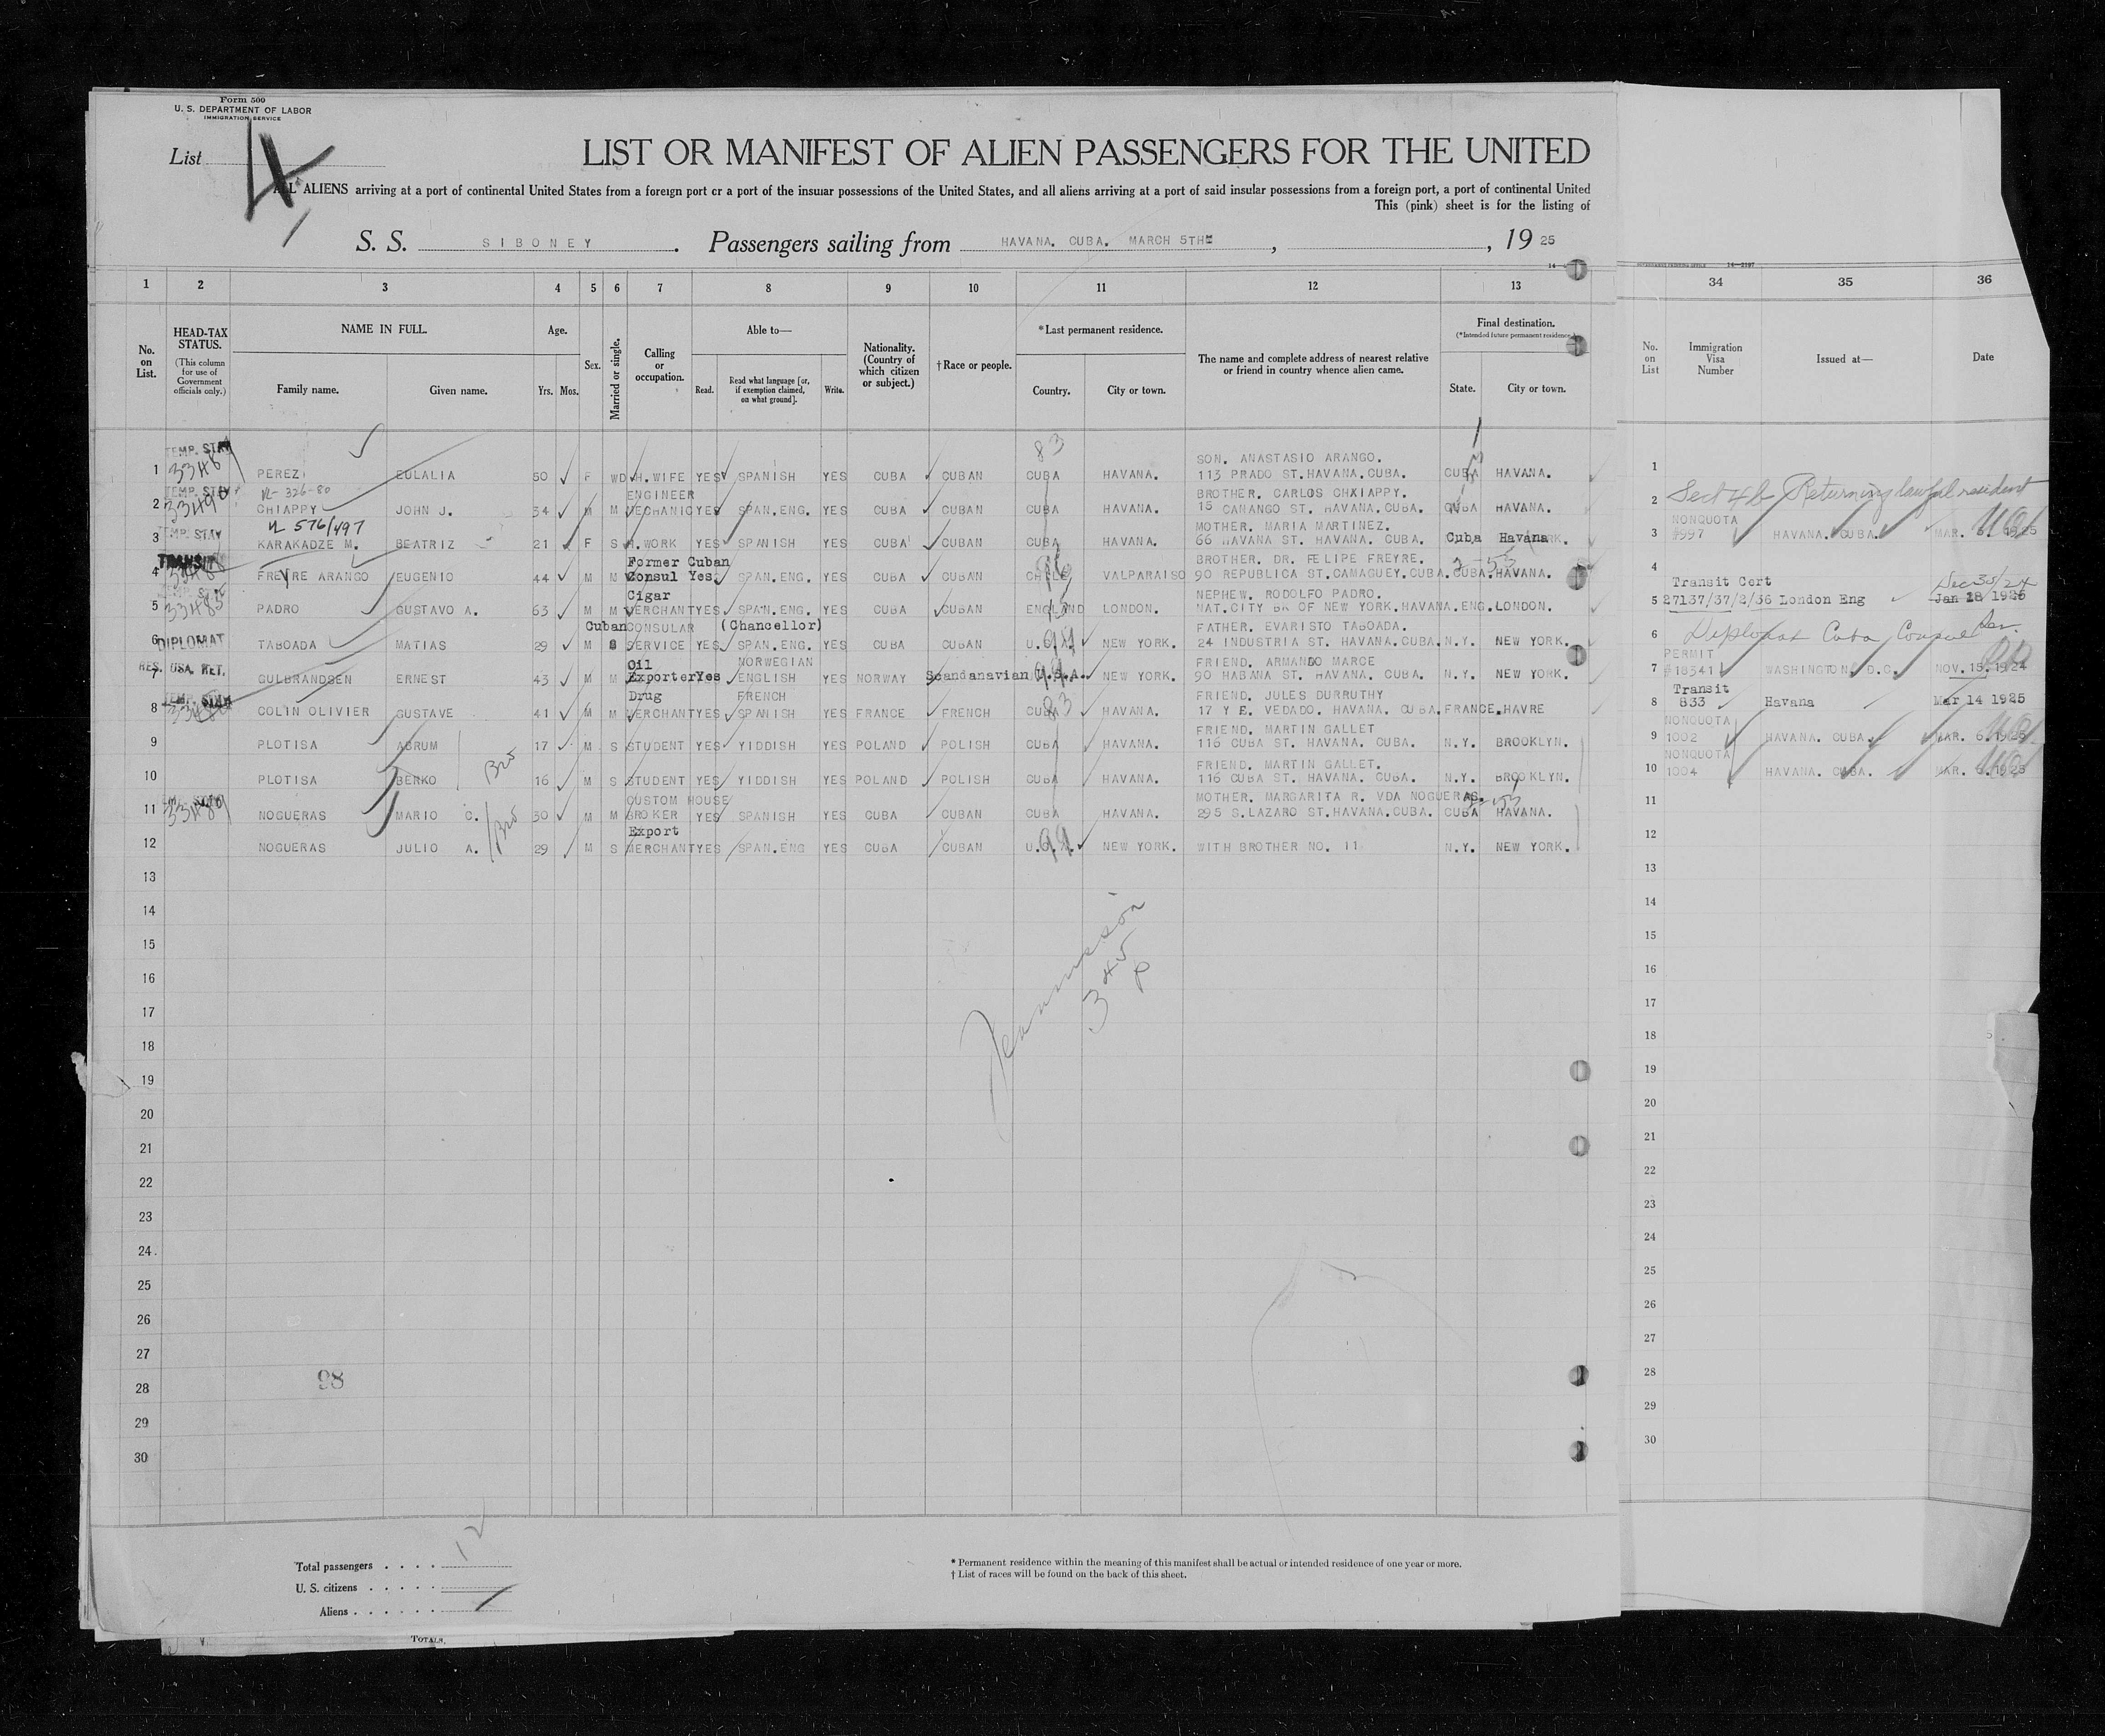 Form 500
U. S. DEPARTMENT OF LABOR
IMMIGRATION SERVICE
List 4
LIST OR MANIFEST OF ALIEN PASSENGERS FOR THE UNITED
ALL ALIENS arriving at a port of continental United States from a foreign port or a port of the insular possessions of the United States, and all aliens arriving at a port of said insular possessions from a foreign port, a port of continental United
This (pink) sheet is for the listing of
S. S. SIBONEY. Passengers sailing from HAVANA. CUBA. MARCH 5TH, , 19 25
1 2 3 4 5 6 7 8 9 10 11 12 13 34 35 36
No. on List. HEAD-TAX STATUS. (This column for use of Government officials only.) NAME IN FULL. Family name. Given name. Age. Yrs. Mos. Sex. Married or single. Calling or occupation. Able to— Read. Read what language [or, if exemption claimed, on what ground]. Write. Nationality. (Country of which citizen or subject.) † Race or people. *Last permanent residence. Country. City or town. The name and complete address of nearest relative or friend in country whence alien came. Final destination. (*Intended future permanent residence.) State. City or town.
No. on List Immigration Visa Number Issued at— Date
TEMP. STAY 83 SON. ANASTASIO ARANGO.
1 PEREZ EULALIA 50 F WD H.WIFE YES SPANISH YES CUBA CUBAN CUBA HAVANA. 113 PRADO ST.HAVANA.CUBA. CUBA HAVANA. 1
TEMP. STAY ENGINEER BROTHER. CARLOS CHIAPPY.
2 CHIAPPY JOHN J. 34 M M MECHANIC YES SPAN.ENG. YES CUBA CUBAN CUBA HAVANA. 15 CANANGO ST. HAVANA.CUBA. CUBA HAVANA. 2 Sect 4b Returning lawful resident
TEMP. STAY 576/497 MOTHER. MARIA MARTINEZ. NONQUOTA
3 KARAKADZE M. BEATRIZ 21 F S H.WORK YES SPANISH YES CUBA CUBAN CUBA HAVANA. 66 HAVANA ST. HAVANA. CUBA. Cuba Havana 3 #997 HAVANA. CUBA. MAR. 6. 1925
TRANSIT Former Cuban BROTHER. DR. FELIPE FREYRE.
4 FREYRE ARANGO EUGENIO 44 M M Consul Yes SPAN.ENG. YES CUBA CUBAN CHILE VALPARAISO 90 REPUBLICA ST.CAMAGUEY.CUBA. CUBA. HAVANA. 4
33485 Cigar NEPHEW. RODOLFO PADRO. Transit Cert
5 PADRO GUSTAVO A. 63 M M MERCHANT YES SPAN.ENG. YES CUBA CUBAN ENGLAND LONDON. NAT.CITY BK OF NEW YORK.HAVANA. ENG. LONDON. 5 27137/37/2/36 London Eng Jan 28 1925
Cuban CONSULAR (Chancellor) FATHER. EVARISTO TABOADA.
6 DIPLOMAT TABOADA MATIAS 29 M S SERVICE YES SPAN.ENG. YES CUBA CUBAN U.S.A. NEW YORK. 24 INDUSTRIA ST. HAVANA.CUBA. N.Y. NEW YORK. 6 Diplomat Cuba Consul
RES. USA. RET. Oil NORWEGIAN FRIEND. ARMANDO MARCE PERMIT
7 GULBRANDSEN ERNEST 43 M M Exporter Yes ENGLISH YES NORWAY Scandanavian U.S.A. NEW YORK. 90 HABANA ST. HAVANA. CUBA. N.Y. NEW YORK. 7 #18341 WASHINGTON D.C. NOV.15.1924
TEMP. STAY Drug FRENCH FRIEND. JULES DURRUTHY Transit
8 COLIN OLIVIER GUSTAVE 41 M M MERCHANT YES SPANISH YES FRANCE FRENCH CUBA HAVANA. 17 Y E. VEDADO. HAVANA. CUBA. FRANCE. HAVRE 8 833 Havana Mar 14 1925
FRIEND. MARTIN GALLET NONQUOTA
9 PLOTISA ABRUM 17 M S STUDENT YES YIDDISH YES POLAND POLISH CUBA HAVANA. 116 CUBA ST. HAVANA. CUBA. N.Y. BROOKLYN. 9 1002 HAVANA. CUBA. MAR. 6.1925
Bro FRIEND. MARTIN GALLET. NONQUOTA
10 PLOTISA BERKO 16 M S STUDENT YES YIDDISH YES POLAND POLISH CUBA HAVANA. 116 CUBA ST. HAVANA. CUBA. N.Y. BROOKLYN. 10 1004 HAVANA. CUBA. MAR. 6.1925
33489 CUSTOM HOUSE MOTHER. MARGARITA R. VDA NOGUERAS.
11 NOGUERAS MARIO C. 30 M M BROKER YES SPANISH YES CUBA CUBAN CUBA HAVANA. 295 S.LAZARO ST.HAVANA.CUBA. CUBA HAVANA. 11
Bro Export
12 NOGUERAS JULIO A. 29 M S MERCHANT YES SPAN.ENG YES CUBA CUBAN U.S.A. NEW YORK. WITH BROTHER NO. 11 N.Y. NEW YORK. 12
13 13
14 14
15 15
16 16
17 17
18 18
19 19
20 20
21 21
22 22
23 23
24 24
25 25
26 26
27 27
28 98 28
29 29
30 30
Total passengers . . . . 12
U. S. citizens . . . . .
Aliens . . . . . .
* Permanent residence within the meaning of this manifest shall be actual or intended residence of one year or more.
† List of races will be found on the back of this sheet.
TOTALS.